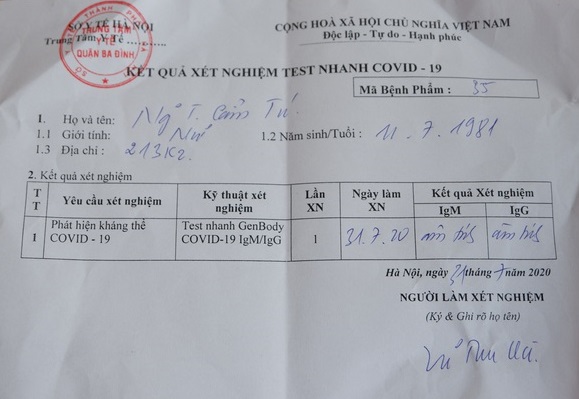 SỞ Y TẾ HÀ NỘI
Trung Tâm Y Tế ............
TRUNG TÂM
Y TẾ
QUẬN BA ĐÌNH
CỘNG HOÀ XÃ HỘI CHỦ NGHĨA VIỆT NAM
Độc lập - Tự do - Hạnh phúc
KẾT QUẢ XÉT NGHIỆM TEST NHANH COVID - 19
Mã Bệnh Phẩm : 35
1. Họ và tên: Ngô T. Cẩm Tú.
1.1 Giới tính: Nữ 1.2 Năm sinh/Tuổi : 11.7.1981
1.3 Địa chỉ :
2. Kết quả xét nghiệm
TT Yêu cầu xét nghiệm Kỹ thuật xét nghiệm Lần XN Ngày làm XN Kết quả Xét nghiệm
IgM IgG
1 Phát hiện kháng thể COVID - 19 Test nhanh GenBody COVID-19 IgM/IgG 1 31.7.20 âm tính âm tính
Hà Nội, ngày 31 tháng 7 năm 2020
NGƯỜI LÀM XÉT NGHIỆM
(Ký & Ghi rõ họ tên)